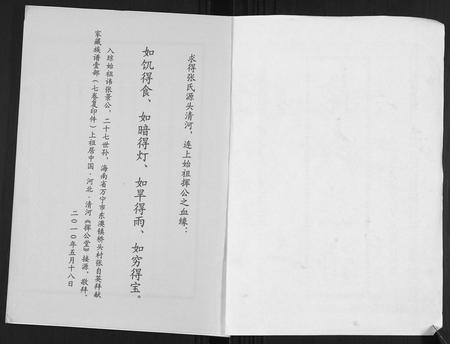 求得张氏源头清河，连上始祖挥公之血缘：
如饥得食、如暗得灯、如旱得雨、如穷得宝。
入琼始祖讳张景公，二十七世孙，海南省万宁市东澳镇桥头村张自英拜献
家藏族谱壹部（七卷复印件）上祖居中国·河北·清河《挥公堂》接源，敬拜。
二〇一〇年五月十八日